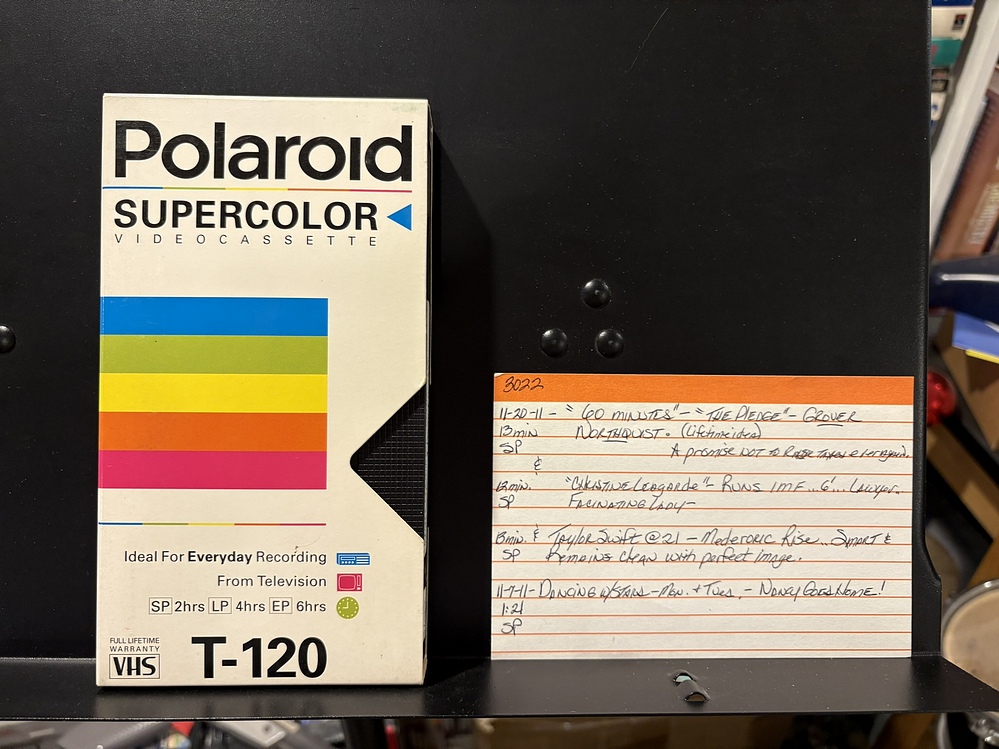 Polaroid
SUPERCOLOR
VIDEOCASSETTE
Ideal For Everyday Recording
From Television
SP 2hrs LP 4hrs EP 6hrs
FULL LIFETIME
WARRANTY
VHS
T-120
3022
11-20-11 - "60 MINUTES" - "THE PLEDGE" - GROVER
13min NORTHQUIST. (Lifetime idea)
SP A promise NOT TO RAISE TAXES ever again.
&
12min. "CHRISTINE LEAGARDE" - RUNS IMF.. 6'... LAWYER.
SP FACINATING LADY-
13min. & TAYLOR SWIFT @ 21 - Mederoric Rise.. SMART &
SP Remains clean with perfect image.
11-7-11 - DANCING W/STARS - MON. + TUES. - NANCY GOES HOME!
1:21
SP